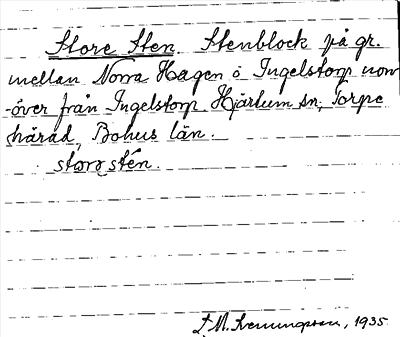 Store Sten. Stenblock på gr.
mellan Norra Hagen o Ingelstorp norr
-över från Ingelstorp Hjärtum sn, Torpe
härad, Bohus län.
store stén.
M. Svenungsson, 1935